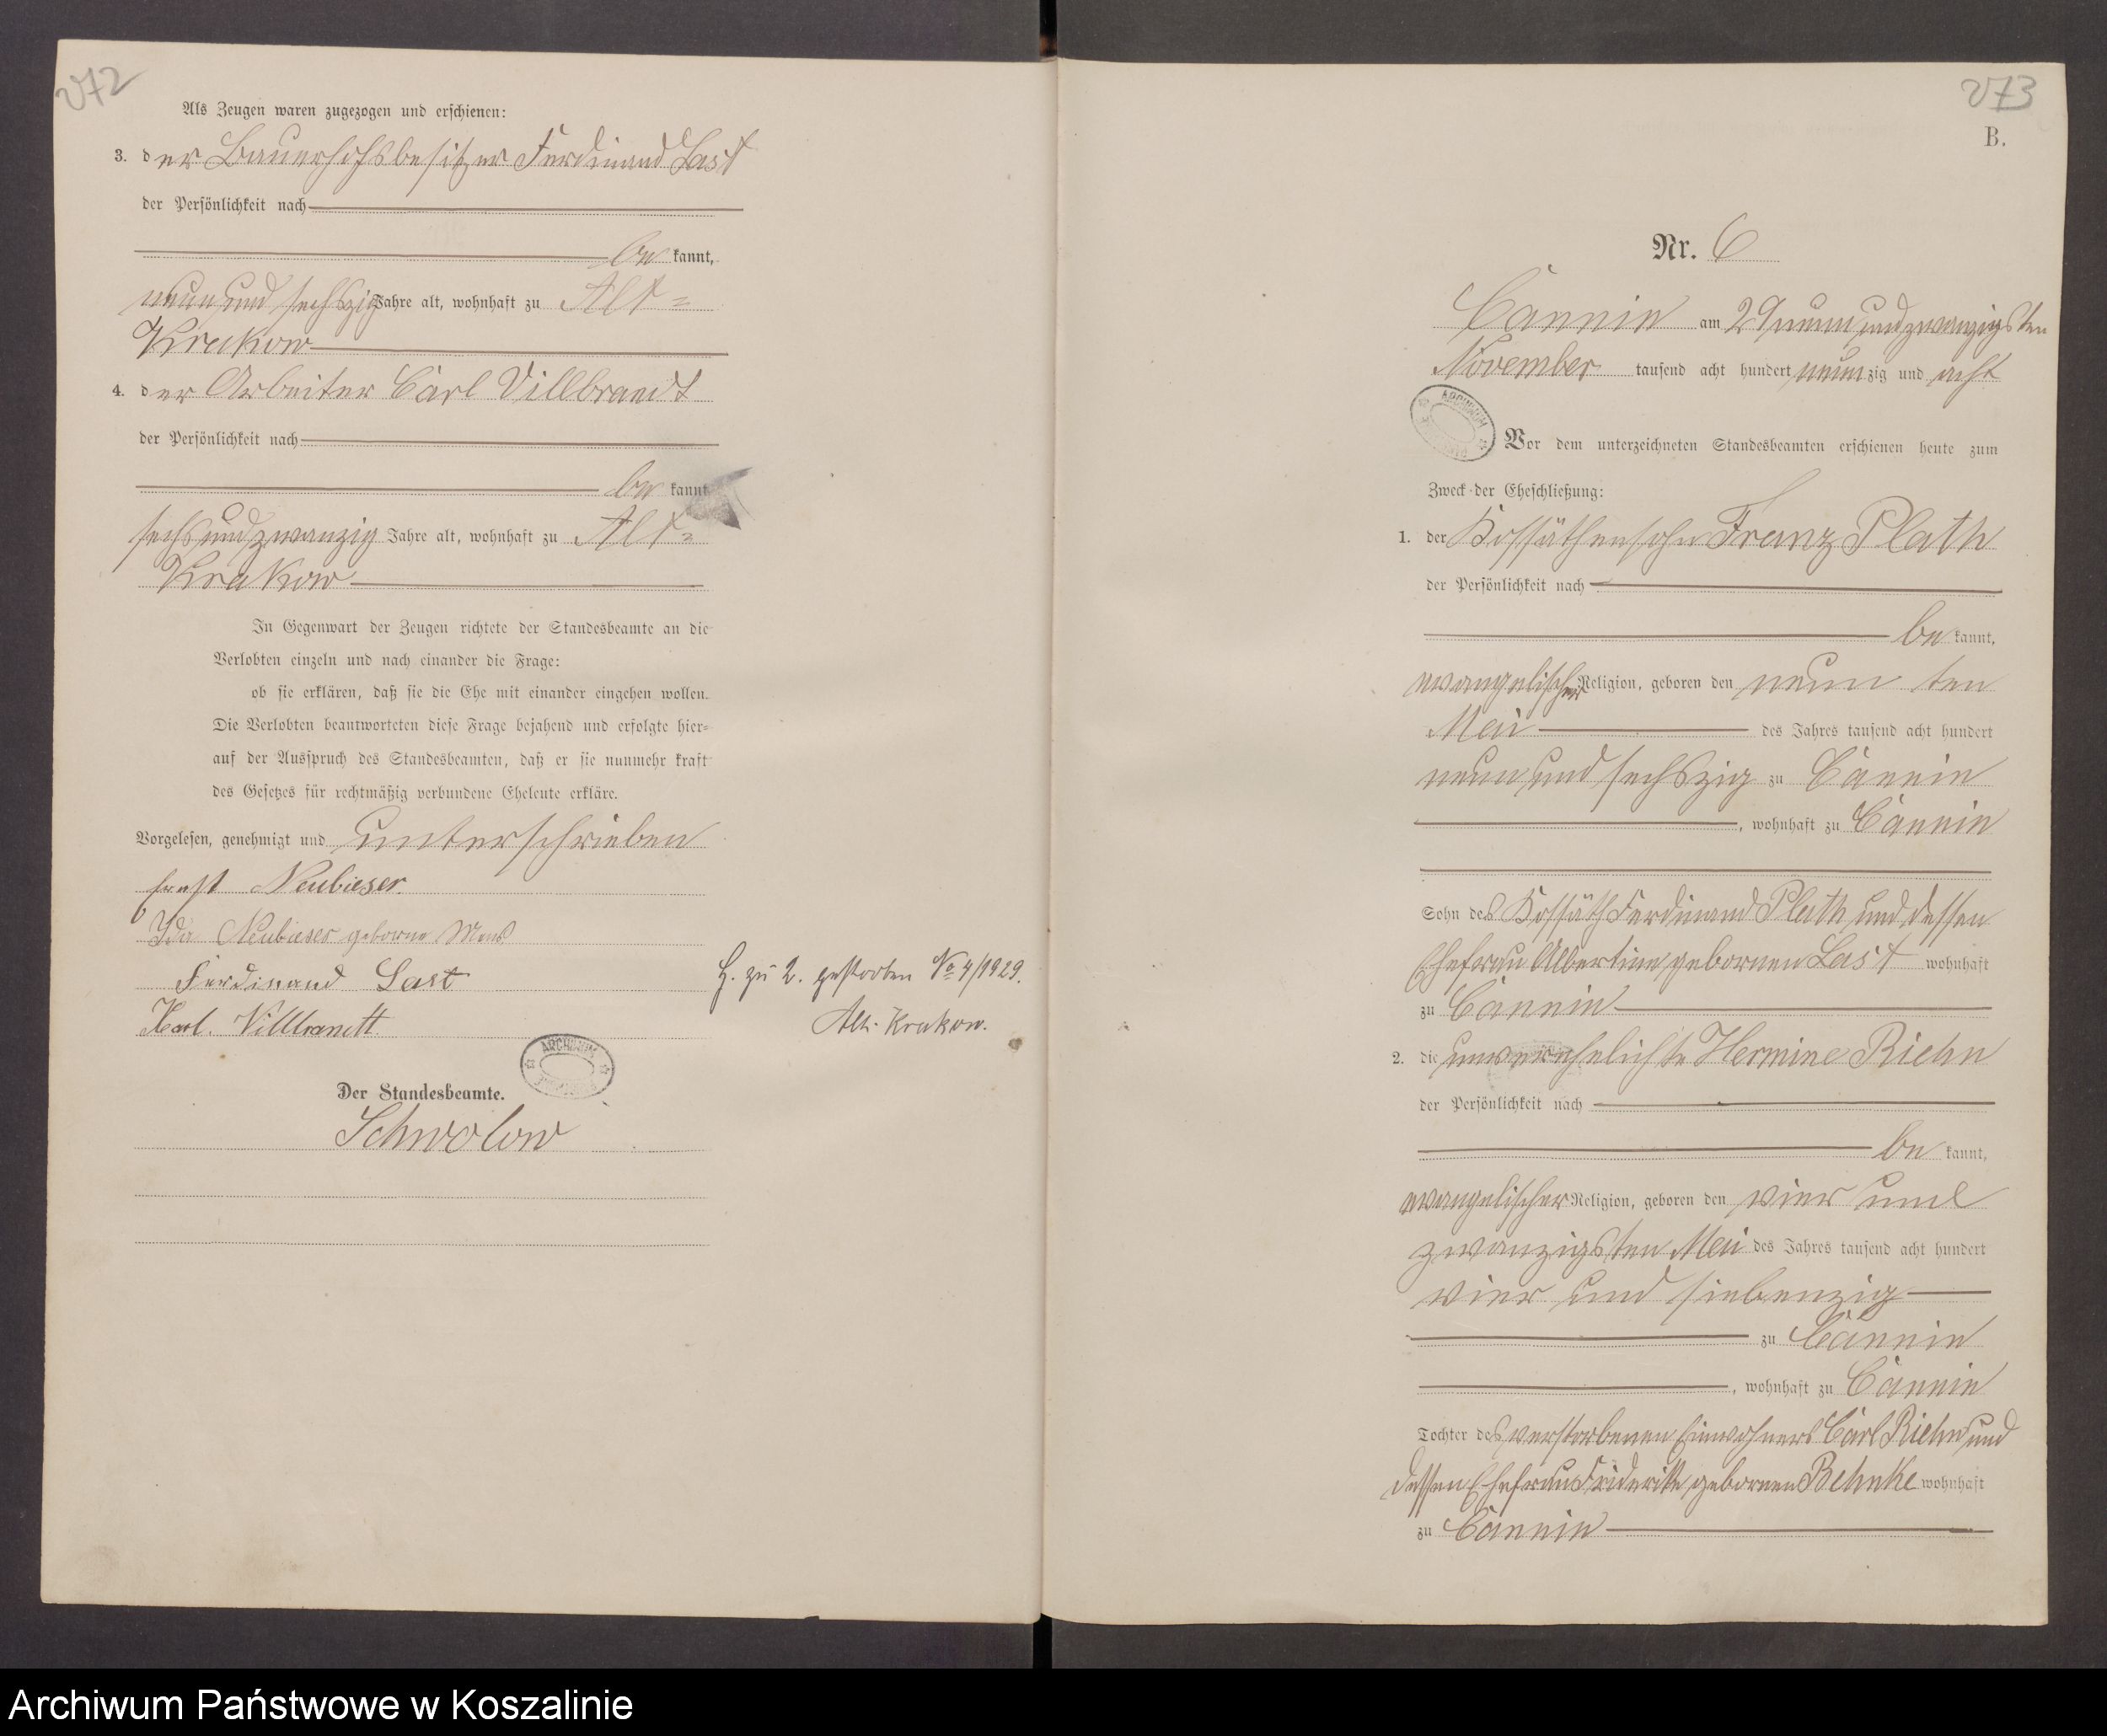 272
Als Zeugen waren zugezogen und erschienen:
3. der Bauerhofsbesitzer Ferdinand Last
der Persönlichkeit nach
be kannt,
neun und sechszig Jahre alt, wohnhaft zu Alt=
Krakow
4. der Arbeiter Carl Villbrandt
der Persönlichkeit nach
be kannt
sechs und zwanzig Jahre alt, wohnhaft zu Alt=
Krakow
In Gegenwart der Zeugen richtete der Standesbeamte an die
Verlobten einzeln und nach einander die Frage:
ob sie erklären, daß sie die Ehe mit einander eingehen wollen.
Die Verlobten beantworteten diese Frage bejahend und erfolgte hier=
auf der Ausspruch des Standesbeamten, daß er sie nunmehr kraft
des Gesetzes für rechtmäßig verbundene Eheleute erkläre.
Vorgelesen, genehmigt und unterschrieben
Ernst Neubieser.
Ida Neubieser geborne
Ferdinand Last
Karl. Villbrandt
H. zu 2. gestorben No 4/1929.
Alt-Krakow.
ARCHIWUM
Der Standesbeamte.
Schwolow
273
B.
Nr. 6
Cannin am 29 neun und zwanzigsten
November tausend acht hundert neunzig und acht
ARCHIWUM
Vor dem unterzeichneten Standesbeamten erschienen heute zum
Zweck der Eheschließung:
1. der Kossäthensohn Franz Plath
der Persönlichkeit nach
be kannt,
evangelischer Religion, geboren den neun ten
Mai des Jahres tausend acht hundert
neun und sechszig zu Cannin
, wohnhaft zu Cannin
Sohn des Kossäth Ferdinand Plath und dessen
Ehefrau Albertine gebornen Last wohnhaft
zu Cannin
2. die unverehelichte Hermine Riehn
der Persönlichkeit nach
be kannt,
evangelischer Religion, geboren den vier und
zwanzigsten Mai des Jahres tausend acht hundert
vier und siebenzig
zu Cannin
, wohnhaft zu Cannin
Tochter des verstorbenen Einwohners Carl Riehn und
dessen Ehefrau Friderike gebornen Behnke wohnhaft
zu Cannin
Archiwum Państwowe w Koszalinie